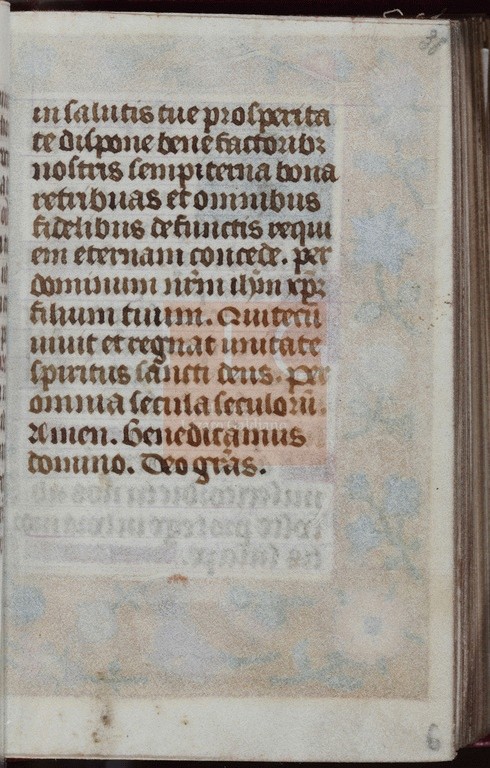 38
in salutis tue prosperita
te dispone benefactoribꝫ
nostris sempiterna bona
retribuas et omnibus
fidelibus defunctis requi
em eternam concede. per
dominum nr̄m ihm̄ xp̄ꝫ
filium tuum. Qui tecū
uiuit et regnat unitate
spiritus sancti deus. Per
omnia secula seculoꝝ.
Amen. Benedicamus
domino. Deo gr̄as.
6